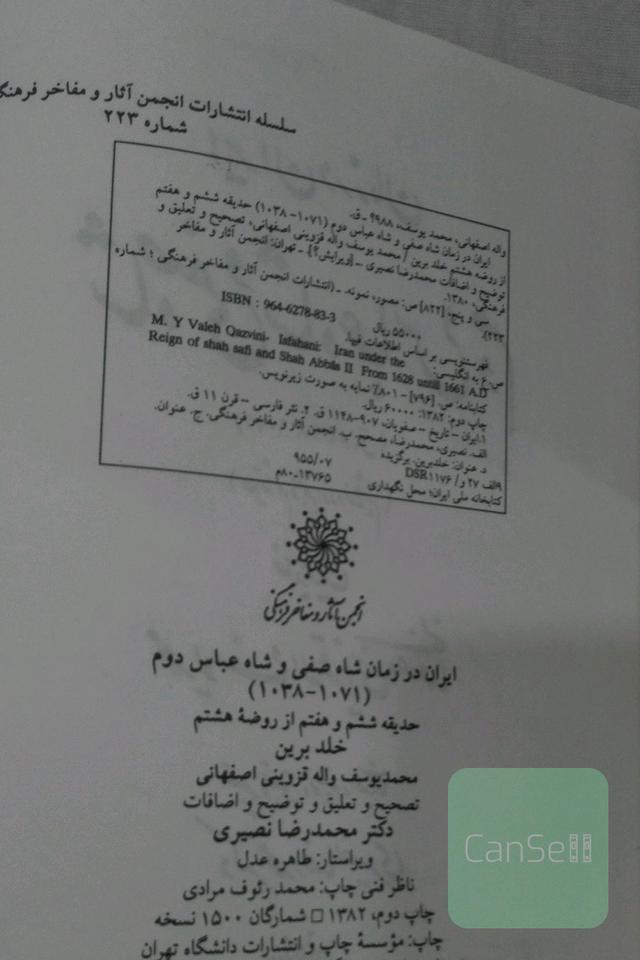 سلسله انتشارات انجمن آثار و مفاخر فرهنگ
شماره ۲۲۳
واله اصفهانی، محمد یوسف، ۹۹۸۸ ـ ق.
ایران در زمان شاه صفی و شاه عباس دوم (۱۰۷۱ – ۱۰۳۸) حدیقه ششم و هفتم
از روضه هشتم خلد برین / محمد یوسف واله قزوینی اصفهانی، تصحیح و تعلیق و
توضیح و اضافات محمدرضا نصیری ـ [ویرایش؟]. ـ تهران: انجمن آثار و مفاخر
فرهنگی، ۱۳۸۰.
سی و پنج، [۸۲۲] ص: مصور، نمونه. ـ (انتشارات انجمن آثار و مفاخر فرهنگی ؛ شماره
۲۲۳).
ISBN : 964-6278-83-3
۵۵۰۰۰ ریال
فهرستنویسی بر اساس اطلاعات فیپا.
ص.ع به انگلیسی:
M. Y Valeh Qazvini- Isfahani: Iran under the
Reign of shah safi and Shah Abbas II From 1628 untill 1661 A.D
کتابنامه: ص. [۷۹۶] – ۸۰۱؛ نمایه به صورت زیرنویس.
چاپ دوم: ۱۳۸۲: ۶۰۰۰۰ ریال.
۱.ایران – تاریخ – صفویان، ۹۰۷–۱۱۴۸ ق. ۲. نثر فارسی – قرن ۱۱ ق.
الف. نصیری، محمدرضا، مصحح. ب. انجمن آثار و مفاخر فرهنگی. ج. عنوان.
د. عنوان: خلدبرین. برگزیده
۹الف ۲۷ و/ DSR۱۱۷۶
۹۵۵/۰۷
کتابخانه ملی ایران؛ محل نگهداری
۱۳۷۶۵–۸۰م
انجمن آثار و مفاخر فرهنگی
ایران در زمان شاه صفی و شاه عباس دوم
(۱۰۷۱–۱۰۳۸)
حدیقه ششم و هفتم از روضهٔ هشتم
خلد برین
محمدیوسف واله قزوینی اصفهانی
تصحیح و تعلیق و توضیح و اضافات
دکتر محمدرضا نصیری
ویراستار: طاهره عدل
ناظر فنی چاپ: محمد رئوف مرادی
چاپ دوم، ۱۳۸۲ □ شمارگان ۱۵۰۰ نسخه
چاپ: مؤسسهٔ چاپ و انتشارات دانشگاه تهران
CanSell